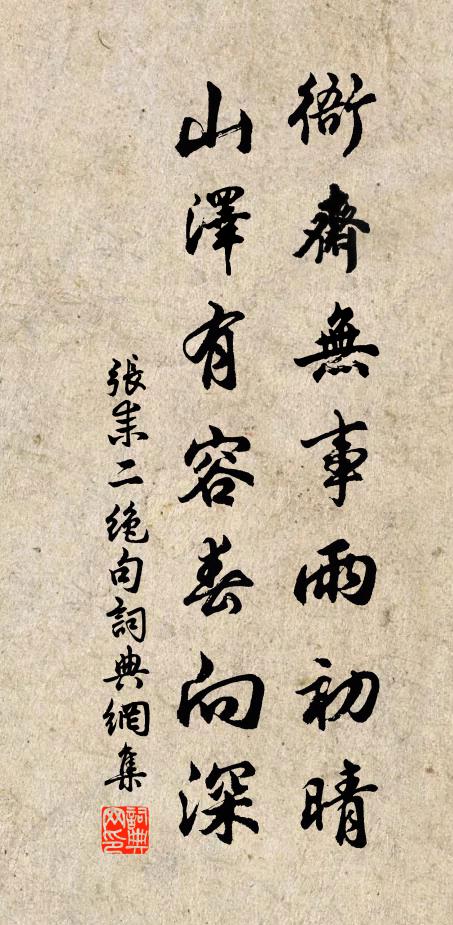 衙齋無事雨初晴
山澤有容春向深
張耒二絶句詞典網集
詞典网印